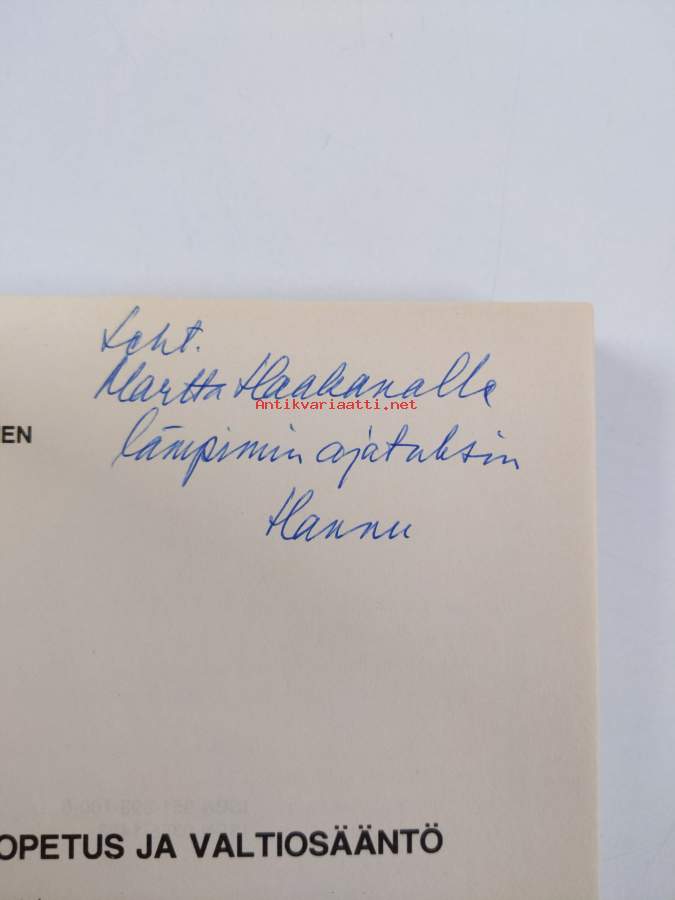 Leht.
Martta Haakanalle
Antikvariaatti.net
NEN
lämpimin ajatuksin
Hannu
OPETUS JA VALTIOSÄÄNTÖ